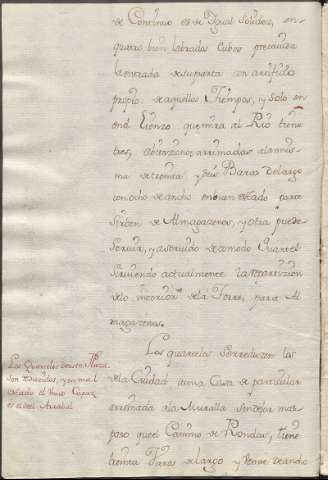 de Continuo es de Igual Solidez, en
quatro bien labrados Cubos
la entrada de su puerta con artificio
propio de aquellos Tiempos, y solo en
en el Lienzo que mira al Rio tiene
tres, arrimadas a la mis-
ma de treinta, y seis Baras de largo
con ocho de ancho en buen estado para
Sirben de Almagazenes, y otra puede
Servir, y a servido de comodo Quartel
Sirviendo actualmente la
de lo interior de la Torre, para Al
magazenes.
Los quarteles se reducen los
de la Ciudad a una Casa de particular
arrimada a la Muralla sin dejar mas
paso que el Camino de Rondas, tiene
treinta Varas de largo y Veinte de ancho
Los Quarteles de esta Plaza
son reducidos, y en mal
estado el Unico Capaz
es el del Arrabal